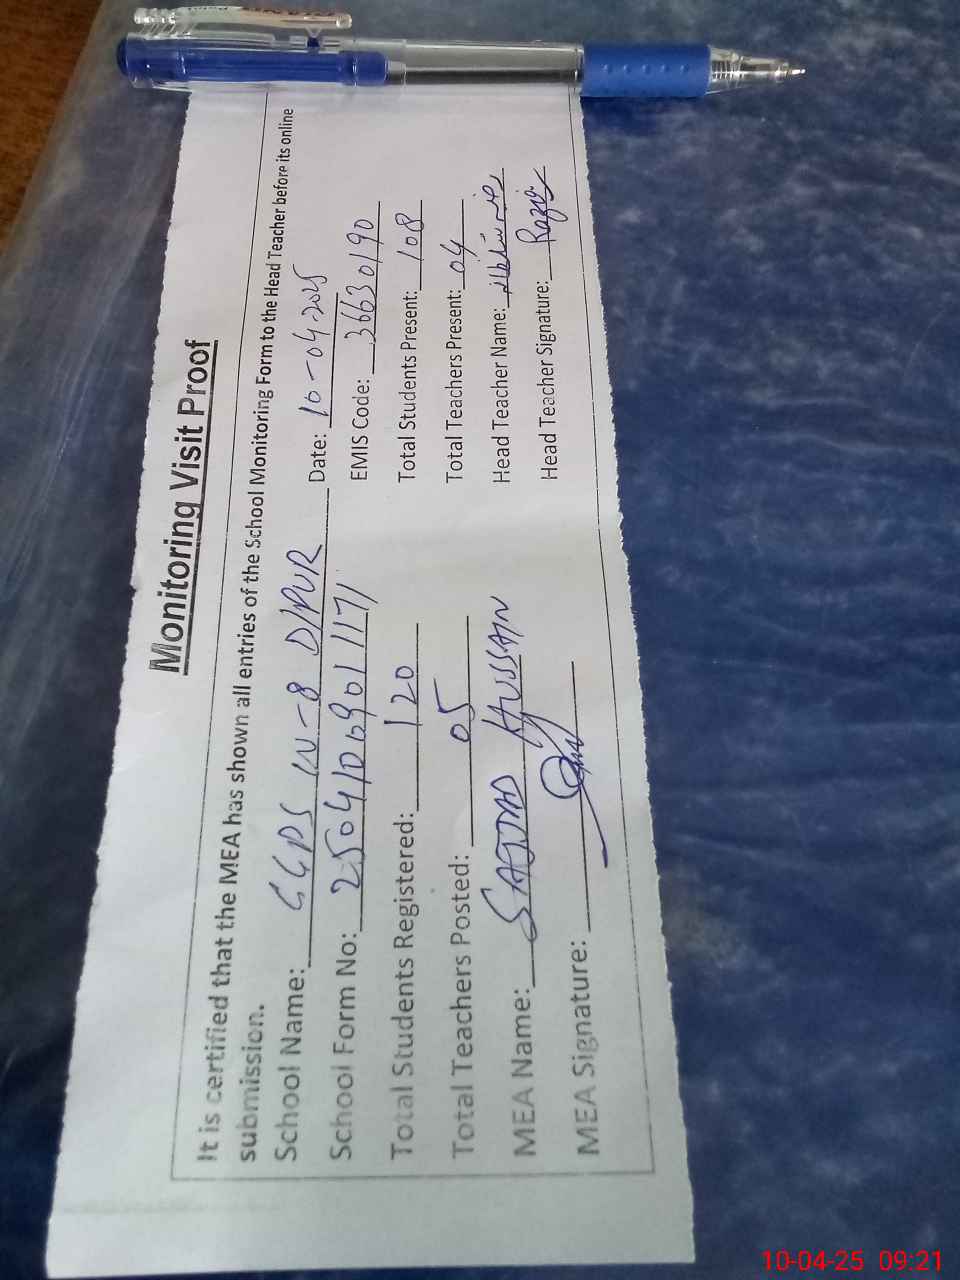 Monitoring Visit Proof
It is certified that the MEA has shown all entries of the School Monitoring Form to the Head Teacher before its online
submission.
School Name: GGPS 1N-8 D/PUR Date: 10-04-2025
School Form No: 250410690117 EMIS Code: 36630190
Total Students Registered: 120 Total Students Present: 108
Total Teachers Posted: 05 Total Teachers Present: 04
MEA Name: SAJJAD HUSSAIN Head Teacher Name:
MEA Signature: Head Teacher Signature: Razia
10-04-25 09:21